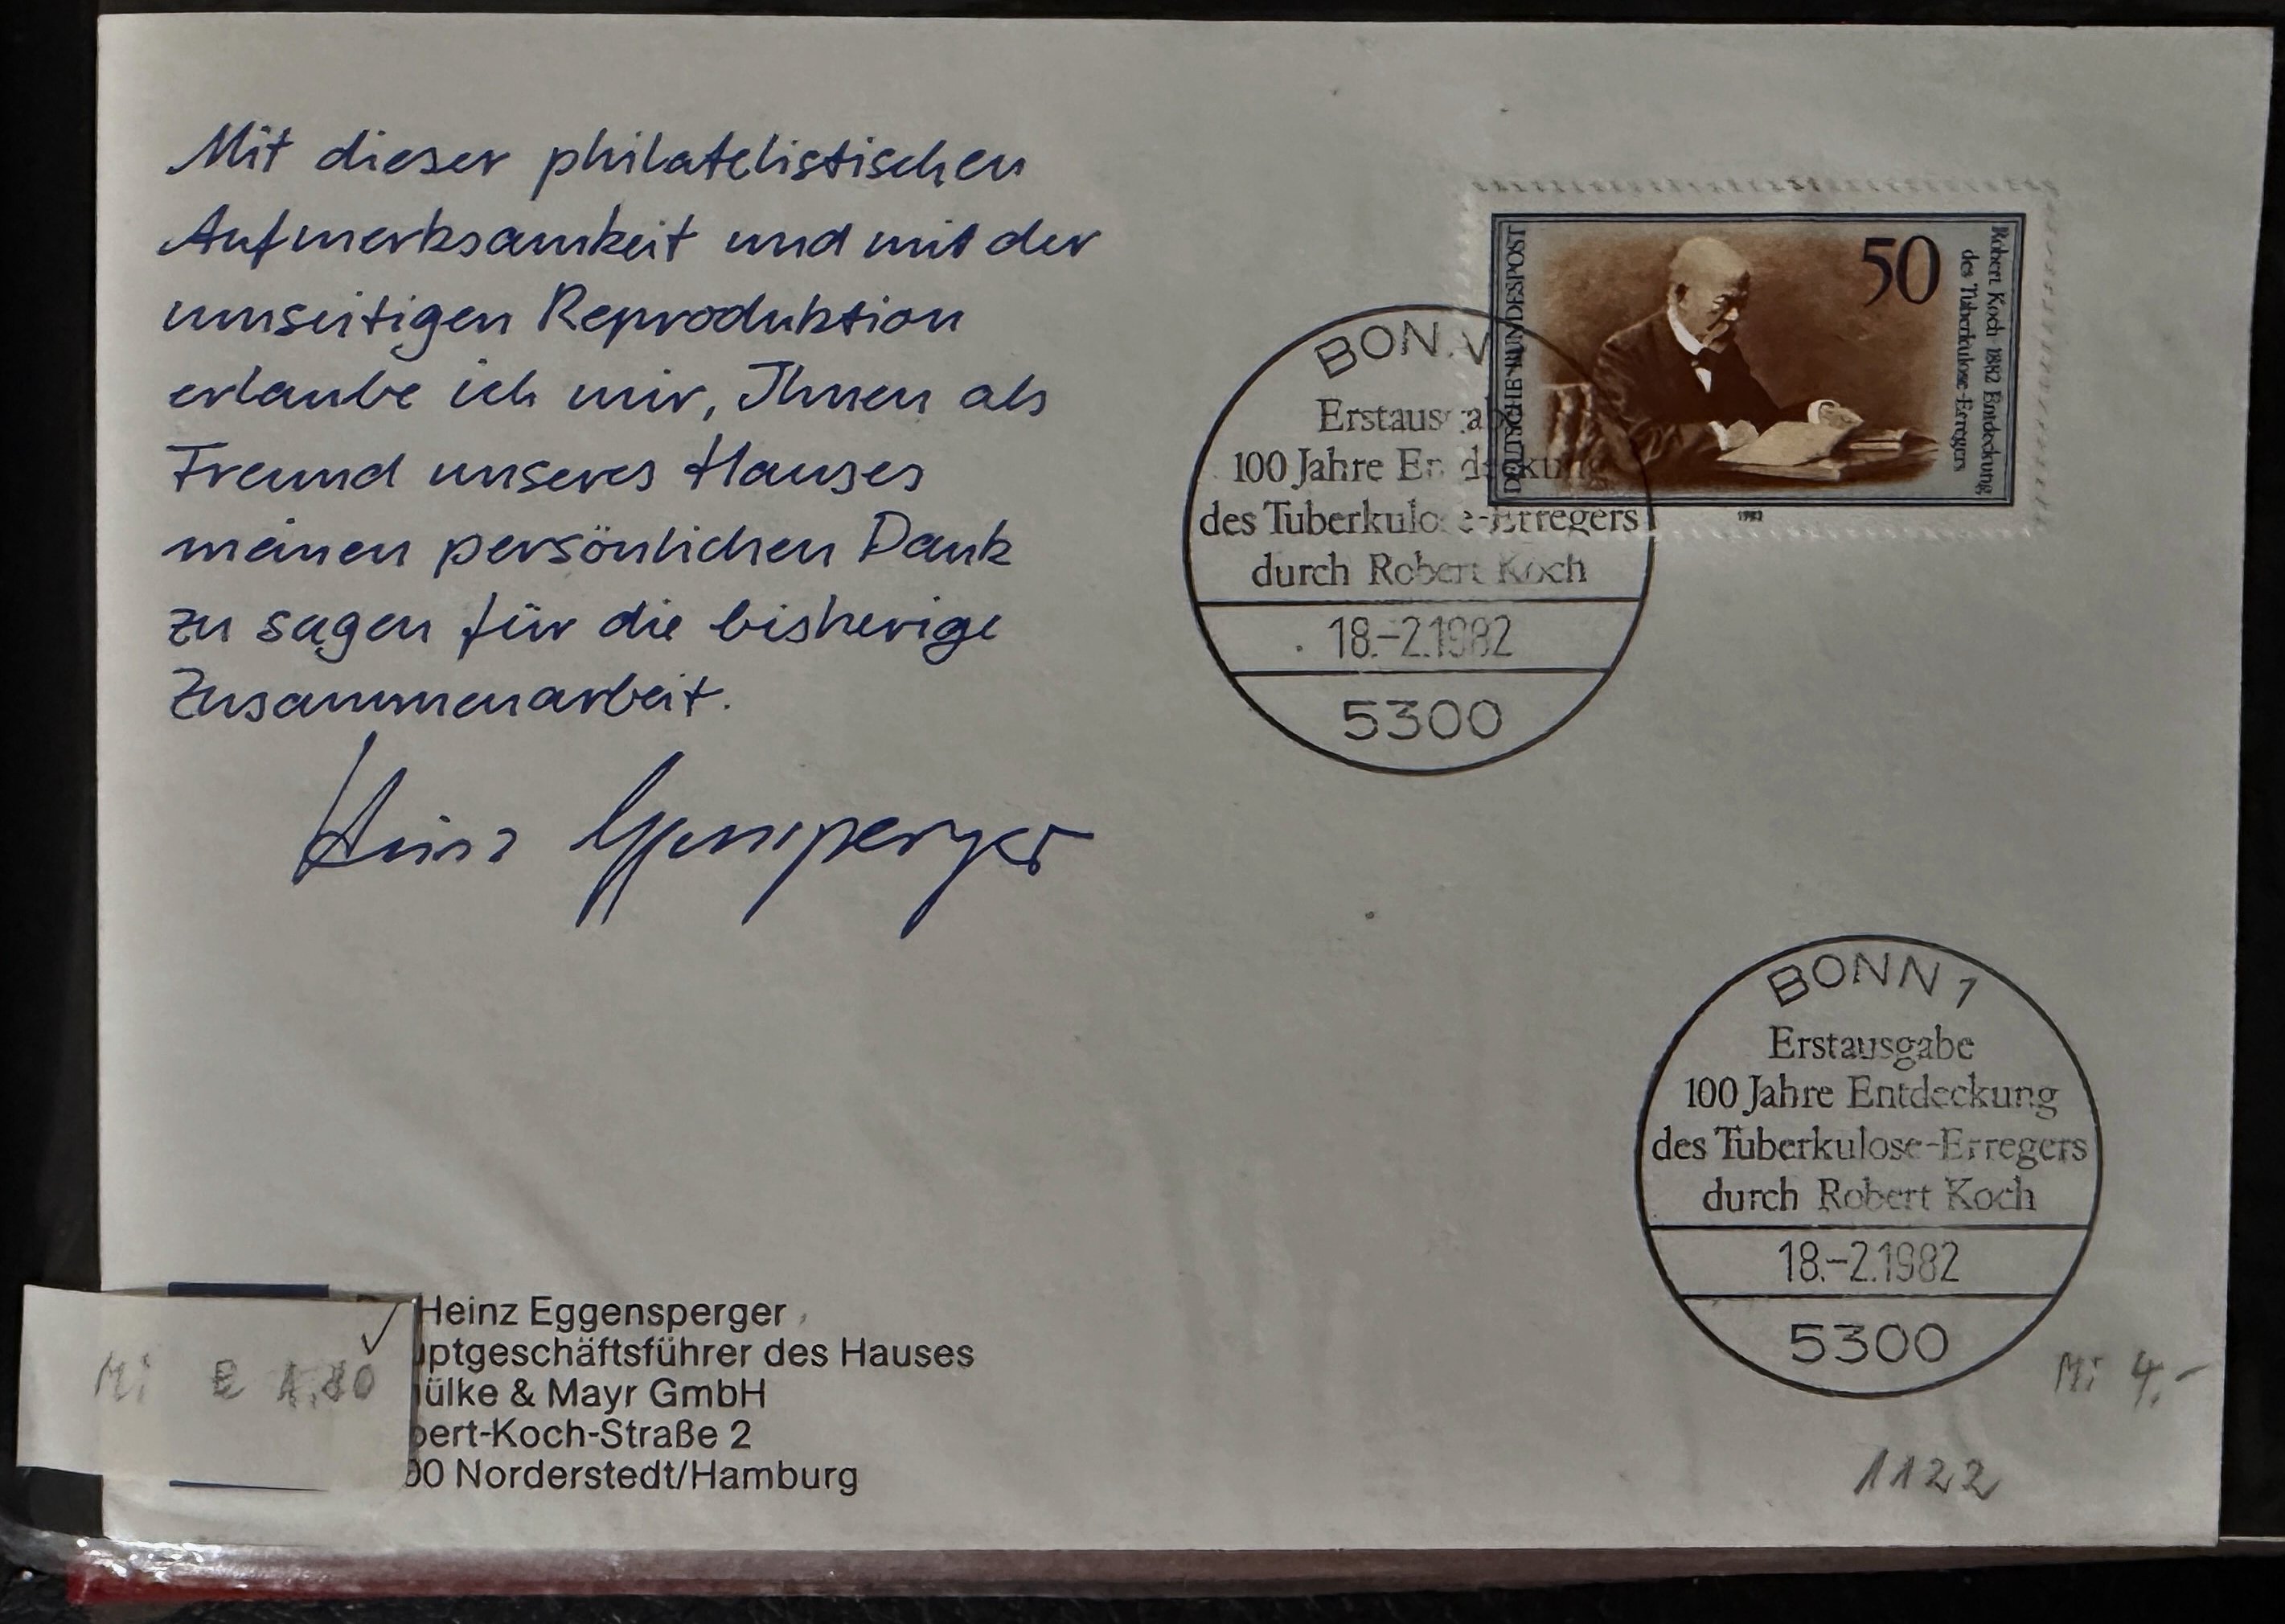 Mit dieser philatelistischen
Aufmerksamkeit und mit der
umseitigen Reproduktion
erlaube ich mir, Ihnen als
Freund unseres Hauses
meinen persönlichen Dank
zu sagen für die bisherige
Zusammenarbeit.
Heinz Eggensperger
DEUTSCHE BUNDESPOST
50
Robert Koch 1882 Entdeckung
des Tuberkulose-Erregers
1982
BONN
Erstausgabe
100 Jahre Entdeckung
des Tuberkulose-Erregers
durch Robert Koch
18.-2.1982
5300
BONN 1
Erstausgabe
100 Jahre Entdeckung
des Tuberkulose-Erregers
durch Robert Koch
18.-2.1982
5300
Mi 4,-
1122
Mi € 1,80
Heinz Eggensperger
ptgeschäftsführer des Hauses
ülke & Mayr GmbH
bert-Koch-Straße 2
00 Norderstedt/Hamburg